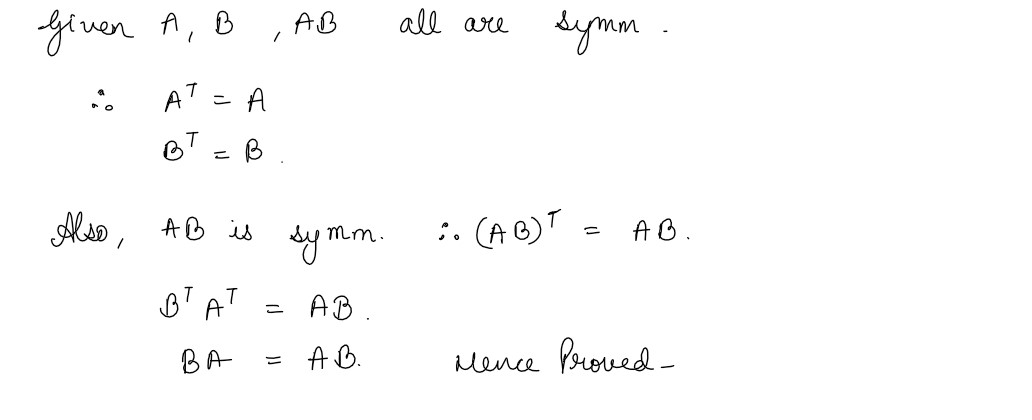 Given A, B , AB all are symm .
∴ Aᵀ = A
Bᵀ = B .
Also, AB is symm. ∴ (AB)ᵀ = AB.
BᵀAᵀ = AB.
BA = AB. Hence Proved -